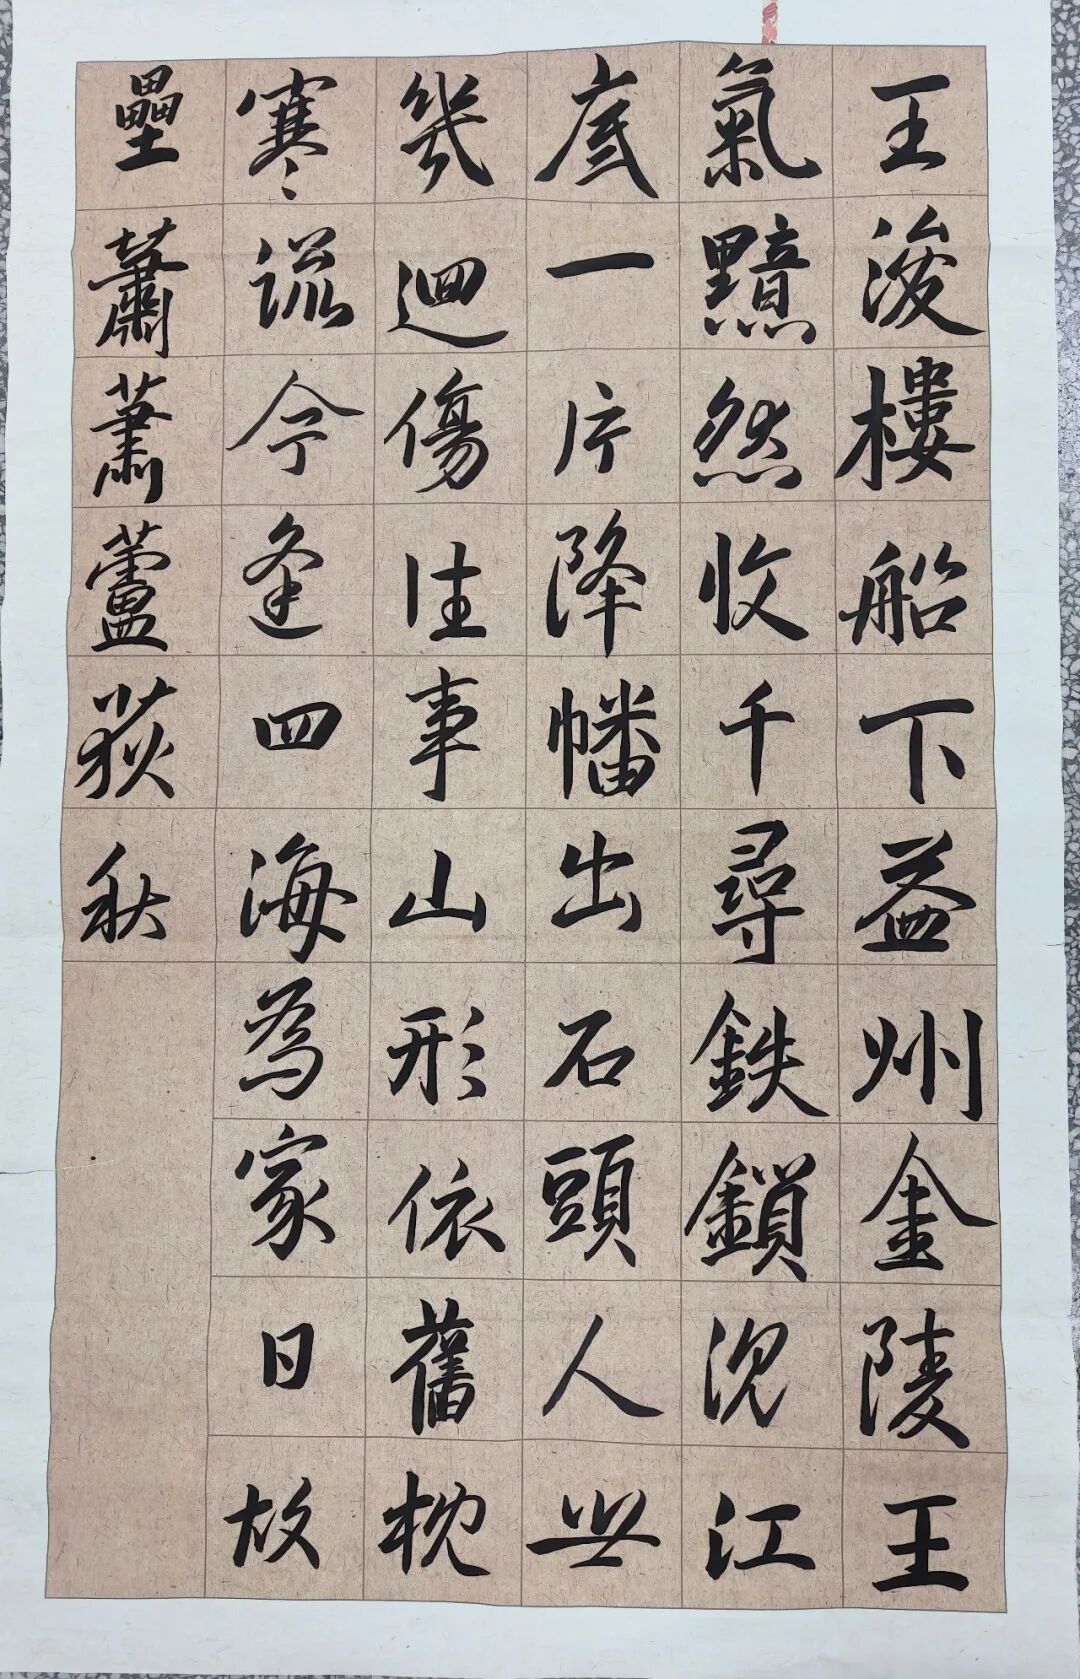 王浚樓船下益州金陵王
氣黯然收千尋鉄鎖沉江
底一片降幡出石頭人世
幾迴傷往事山形依舊枕
寒流今逢四海為家日故
壘蕭蕭蘆荻秋